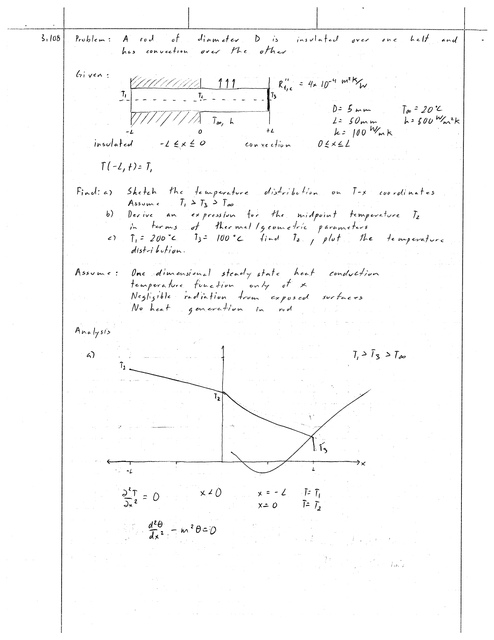 3.108 Problem: A rod of diameter D is insulated over one half and
has convection over the other
Given:
R"t,c = 4×10⁻⁴ m²K/W
T₁ T₂ T₃
D = 5 mm T∞ = 20°C
L = 50 mm h = 500 W/m²K
k = 100 W/mK
T∞, h
-L 0 +L
insulated -L ≤ x ≤ 0 convection 0 ≤ x ≤ L
T(-L,t) = T₁
Find: a) Sketch the temperature distribution on T-x coordinates
Assume T₁ > T₃ > T∞
b) Derive an expression for the midpoint temperature T₂
in terms of thermal/geometric parameters
c) T₁ = 200°C T₃ = 100°C find T₂, plot the temperature
distribution.
Assume: One dimensional steady state heat conduction
temperature function only of x
Negligible radiation from exposed surfaces
No heat generation in rod
Analysis
a) T₁ > T₃ > T∞
T₁
T₂
T₃
-L L x
∂²T/∂x² = 0 x<0 x = -L T = T₁
x = 0 T = T₂
d²θ/dx² - m²θ = 0